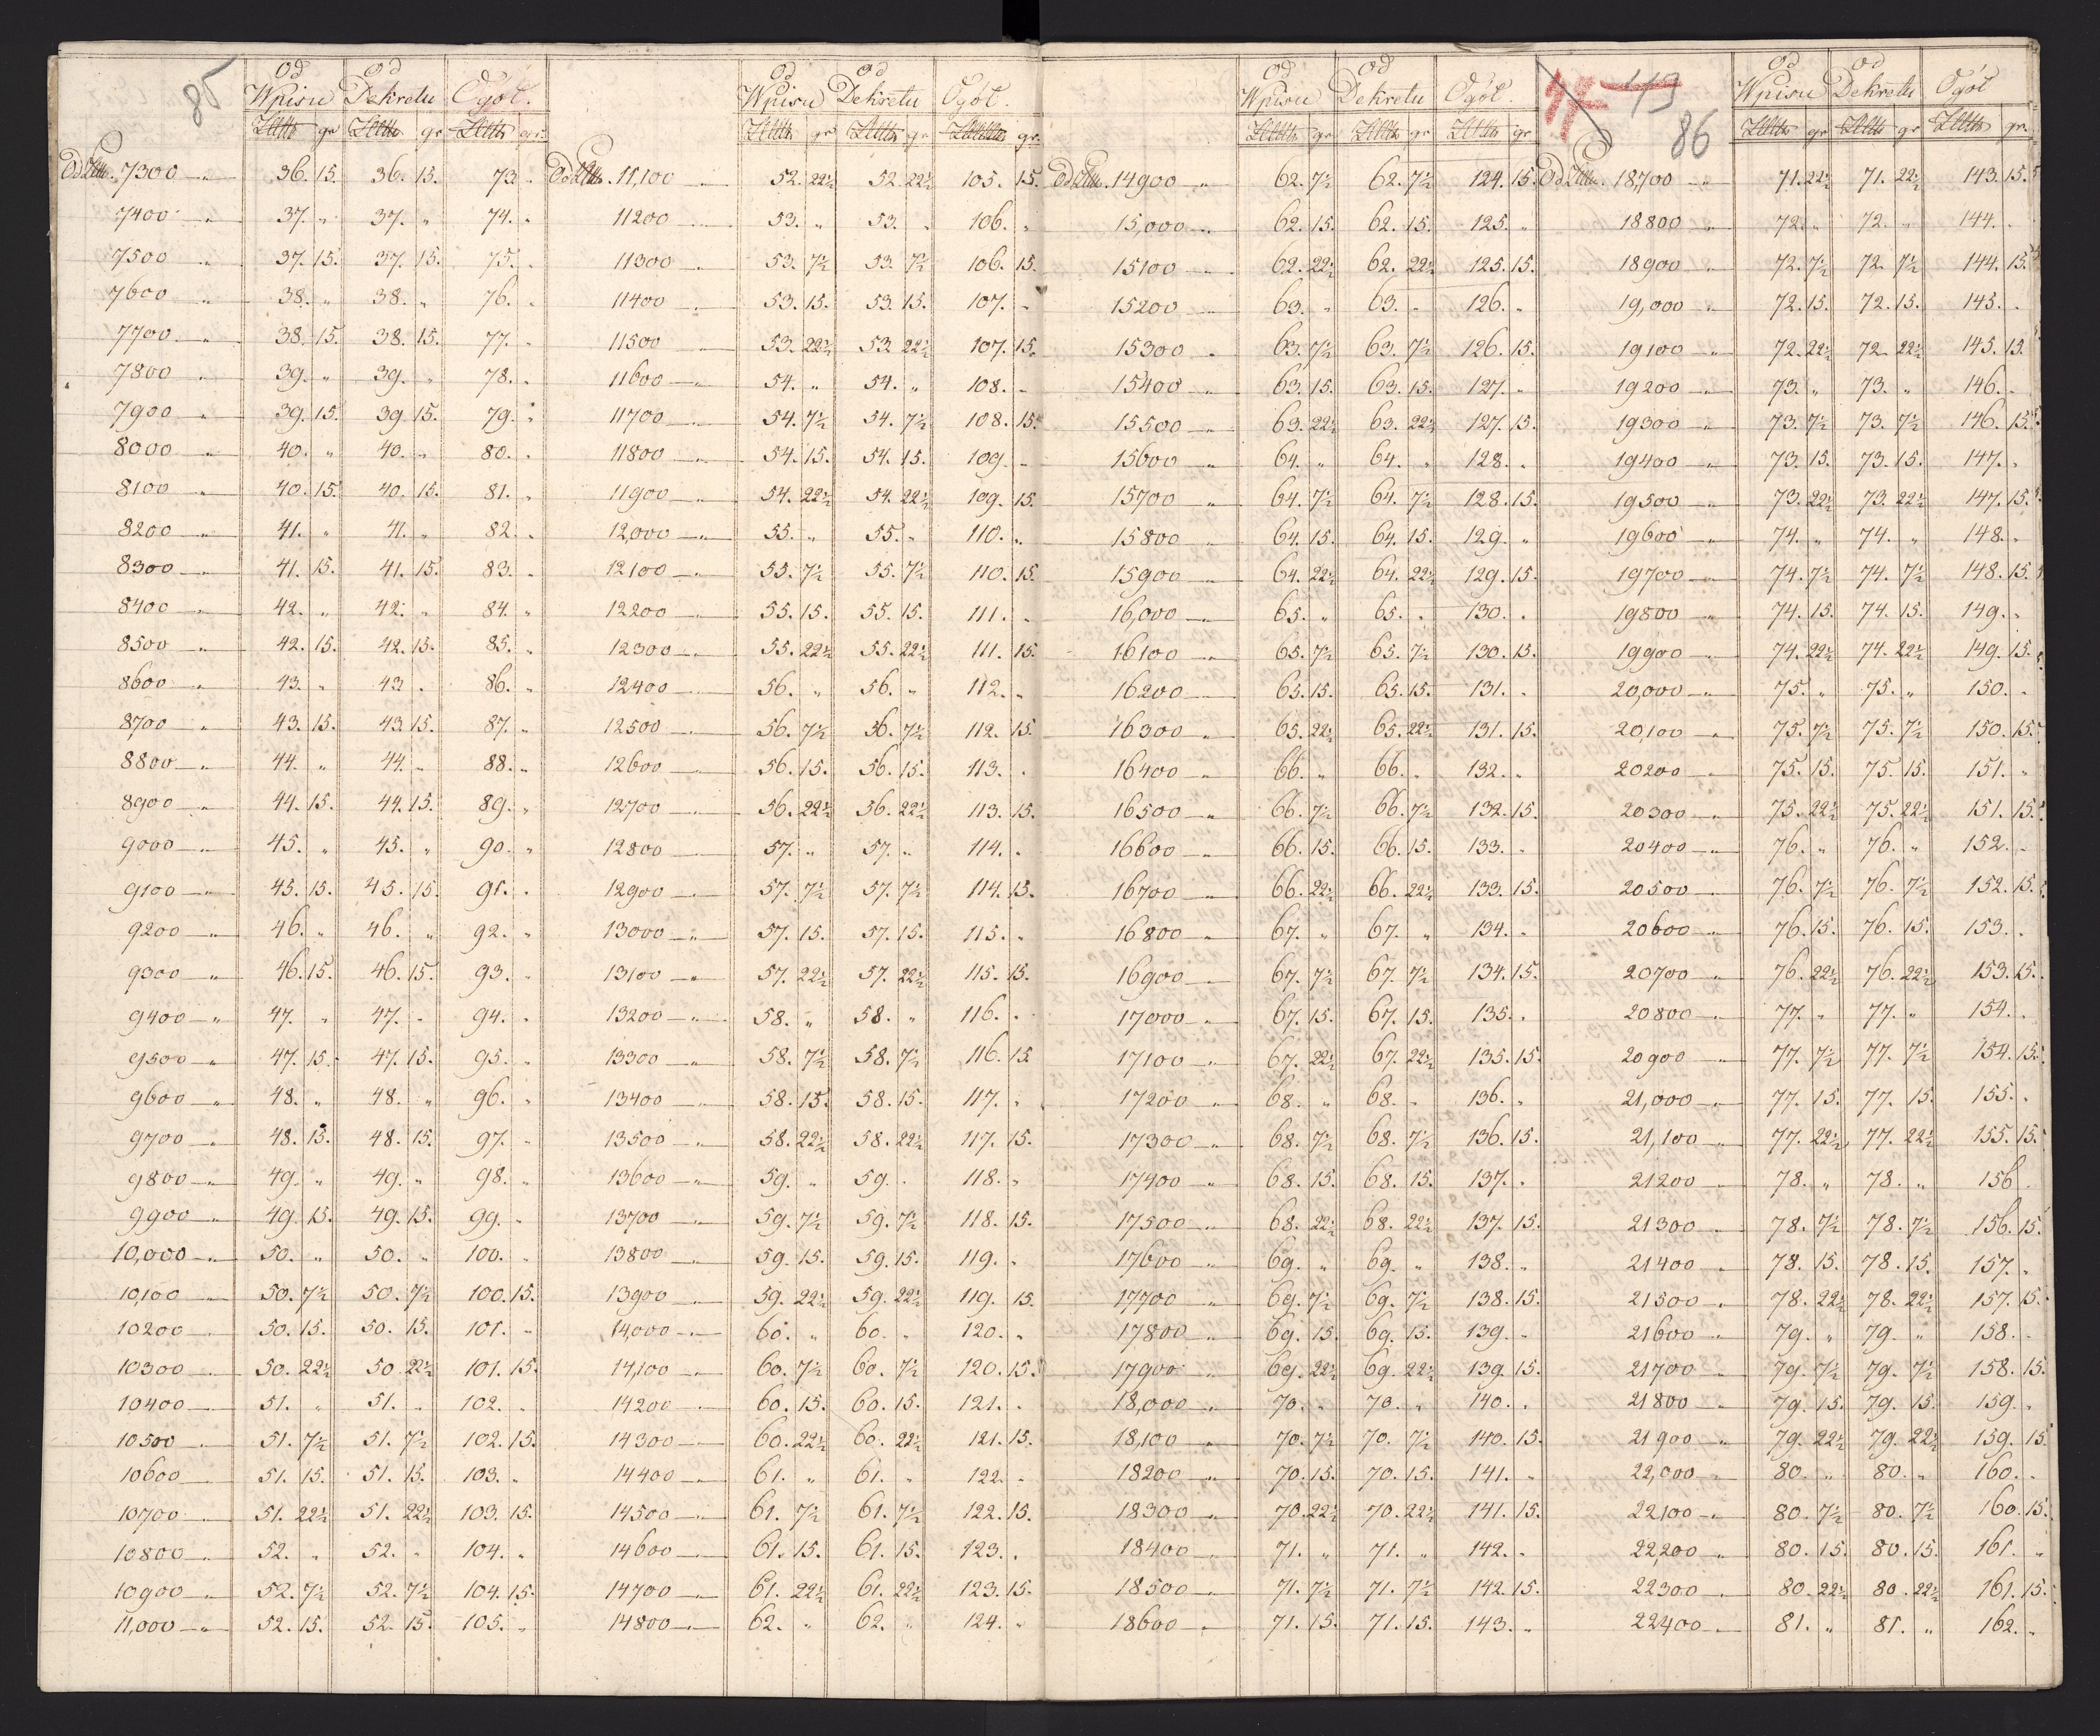 85
Od Wpisu Od Dekretu Ogół.
Złtte gr Złtte gr Złtte gr.
Od Złtte. 7300 „ 36. 15. 36. 15. 73. „
7400 „ 37. „ 37. „ 74. „
7500 „ 37. 15. 37. 15. 75. „
7600 „ 38. „ 38. „ 76. „
7700 „ 38. 15. 38. 15. 77. „
7800 „ 39. „ 39. „ 78. „
7900 „ 39. 15. 39. 15. 79. „
8000 „ 40. „ 40. „ 80. „
8100 „ 40. 15. 40. 15. 81. „
8200 „ 41. „ 41. „ 82. „
8300 „ 41. 15. 41. 15. 83. „
8400 „ 42. „ 42. „ 84. „
8500 „ 42. 15. 42. 15. 85. „
8600 „ 43. „ 43. „ 86. „
8700 „ 43. 15. 43. 15. 87. „
8800 „ 44. „ 44. „ 88. „
8900 „ 44. 15. 44. 15. 89. „
9000 „ 45. „ 45. „ 90. „
9100 „ 45. 15. 45. 15. 91. „
9200 „ 46. „ 46. „ 92. „
9300 „ 46. 15. 46. 15. 93. „
9400 „ 47. „ 47. „ 94. „
9500 „ 47. 15. 47. 15. 95. „
9600 „ 48. „ 48. „ 96. „
9700 „ 48. 15. 48. 15. 97. „
9800 „ 49. „ 49. „ 98. „
9900 „ 49. 15. 49. 15. 99. „
10,000 „ 50. „ 50. „ 100. „
10,100 „ 50. 7½ 50. 7½ 100. 15.
10200 „ 50. 15. 50. 15. 101. „
10300 „ 50. 22½ 50. 22½ 101. 15.
10400 „ 51. „ 51. „ 102. „
10500 „ 51. 7½ 51. 7½ 102. 15.
10600 „ 51. 15. 51. 15. 103. „
10700 „ 51. 22½ 51. 22½ 103. 15.
10800 „ 52. „ 52. „ 104. „
10900 „ 52. 7½ 52. 7½ 104. 15.
11,000 „ 52. 15. 52. 15. 105. „
Od Wpisu Od Dekretu Ogół.
Złtte gr Złtte gr Złtte gr.
Od Złtte. 11,100 „ 52. 22½ 52. 22½ 105. 15.
11200 „ 53. „ 53. „ 106. „
11300 „ 53. 7½ 53. 7½ 106. 15.
11400 „ 53. 15. 53. 15. 107. „
11500 „ 53. 22½ 53. 22½ 107. 15.
11600 „ 54. „ 54. „ 108. „
11700 „ 54. 7½ 54. 7½ 108. 15.
11800 „ 54. 15. 54. 15. 109. „
11900 „ 54. 22½ 54. 22½ 109. 15.
12,000 „ 55. „ 55. „ 110. „
12100 „ 55. 7½ 55. 7½ 110. 15.
12200 „ 55. 15. 55. 15. 111. „
12300 „ 55. 22½ 55. 22½ 111. 15.
12400 „ 56. „ 56. „ 112. „
12500 „ 56. 7½ 56. 7½ 112. 15.
12600 „ 56. 15. 56. 15. 113. „
12700 „ 56. 22½ 56. 22½ 113. 15.
12800 „ 57. „ 57. „ 114. „
12900 „ 57. 7½ 57. 7½ 114. 15.
13000 „ 57. 15. 57. 15. 115. „
13100 „ 57. 22½ 57. 22½ 115. 15.
13200 „ 58. „ 58. „ 116. „
13300 „ 58. 7½ 58. 7½ 116. 15
13400 „ 58. 15. 58. 15. 117. „
13500 „ 58. 22½ 58. 22½ 117. 15.
13600 „ 59. „ 59. „ 118. „
13700 „ 59. 7½ 59. 7½ 118. 15.
13800 „ 59. 15. 59. 15. 119. „
13900 „ 59. 22½ 59. 22½ 119. 15.
14,000 „ 60. „ 60. „ 120. „
14,100 „ 60. 7½ 60. 7½ 120. 15.
14200 „ 60. 15. 60. 15. 121. „
14300 „ 60. 22½ 60. 22½ 121. 15.
14400 „ 61. „ 61. „ 122. „
14500 „ 61. 7½ 61. 7½ 122. 15.
14600 „ 61. 15. 61. 15. 123. „
14700 „ 61. 22½ 61. 22½ 123. 15.
14800 „ 62. „ 62. „ 124. „
Od Wpisu Od Dekretu Ogół.
Złtte gr Złtte gr Złtte gr
Od Złtte. 14900 „ 62. 7½ 62. 7½ 124. 15.
15,000 „ 62. 15. 62. 15. 125. „
15100 „ 62. 22½ 62. 22½ 125. 15.
15200 „ 63. „ 63. „ 126. „
15300 „ 63. 7½ 63. 7½ 126. 15.
15400 „ 63. 15. 63. 15. 127. „
15500 „ 63. 22½ 63. 22½ 127. 15.
15600 „ 64. „ 64. „ 128. „
15700 „ 64. 7½ 64. 7½ 128. 15.
15800 „ 64. 15. 64. 15. 129. „
15900 „ 64. 22½ 64. 22½ 129. 15.
16,000 „ 65. „ 65. „ 130. „
16100 „ 65. 7½ 65. 7½ 130. 15.
16200 „ 65. 15. 65. 15. 131. „
16300 „ 65. 22½ 65. 22½ 131. 15.
16400 „ 66. „ 66. „ 132. „
16500 „ 66. 7½ 66. 7½ 132. 15.
16600 „ 66. 15. 66. 15. 133. „
16700 „ 66. 22½ 66. 22½ 133. 15.
16800 „ 67. „ 67. „ 134. „
16900 „ 67. 7½ 67. 7½ 134. 15.
17000 „ 67. 15. 67. 15. 135. „
17100 „ 67. 22½ 67. 22½ 135. 15.
17200 „ 68. „ 68. „ 136. „
17300 „ 68. 7½ 68. 7½ 136. 15.
17400 „ 68. 15. 68. 15. 137. „
17500 „ 68. 22½ 68. 22½ 137. 15.
17600 „ 69. „ 69. „ 138. „
17700 „ 69. 7½ 69. 7½ 138. 15.
17800 „ 69. 15. 69. 15. 139. „
17900 „ 69. 22½ 69. 22½ 139. 15.
18,000 „ 70. „ 70. „ 140. „
18,100 „ 70. 7½ 70. 7½ 140. 15.
18200 „ 70. 15. 70. 15. 141. „
18300 „ 70. 22½ 70. 22½ 141. 15.
18400 „ 71. „ 71. „ 142. „
18500 „ 71. 7½ 71. 7½ 142. 15.
18600 „ 71. 15. 71. 15. 143. „
113
86
Od Wpisu Od Dekretu Ogół
Złtte gr Złtte gr Złtte gr.
Od Złtte. 18,700 „ 71. 22½ 71. 22½ 143. 15.
18800 „ 72. „ 72. „ 144. „
18900 „ 72. 7½ 72. 7½ 144. 15.
19,000 „ 72. 15. 72. 15. 145. „
19100 „ 72. 22½ 72. 22½ 145. 15.
19200 „ 73. „ 73. „ 146. „
19300 „ 73. 7½ 73. 7½ 146. 15.
19400 „ 73. 15. 73. 15. 147. „
19500 „ 73. 22½ 73. 22½ 147. 15.
19600 „ 74. „ 74. „ 148. „
19700 „ 74. 7½ 74. 7½ 148. 15.
19800 „ 74. 15. 74. 15. 149. „
19900 „ 74. 22½ 74. 22½ 149. 15.
20,000 „ 75. „ 75. „ 150. „
20,100 „ 75. 7½ 75. 7½ 150. 15.
20200 „ 75. 15. 75. 15. 151. „
20300 „ 75. 22½ 75. 22½ 151. 15.
20400 „ 76. „ 76. „ 152. „
20500 „ 76. 7½ 76. 7½ 152. 15.
20600 „ 76. 15. 76. 15. 153. „
20700 „ 76. 22½ 76. 22½ 153. 15.
20800 „ 77. „ 77. „ 154. „
20900 „ 77. 7½ 77. 7½ 154. 15.
21,000 „ 77. 15. 77. 15. 155. „
21,100 „ 77. 22½ 77. 22½ 155. 15.
21200 „ 78. „ 78. „ 156
21300 „ 78. 7½ 78. 7½ 156. 15.
21400 „ 78. 15. 78. 15. 157. „
21500 „ 78. 22½ 78. 22½ 157. 15.
21600 „ 79. „ 79. „ 158. „
21700 „ 79. 7½ 79. 7½ 158. 15.
21800 „ 79. 15. 79. 15. 159. „
21900 „ 79. 22½ 79. 22½ 159. 15.
22,000 „ 80. „ 80. „ 160. „
22,100 „ 80. 7½ 80. 7½ 160. 15.
22,200 „ 80. 15. 80. 15. 161. „
22300 „ 80. 22½ 80. 22½ 161. 15.
22400 „ 81. „ 81. „ 162. „